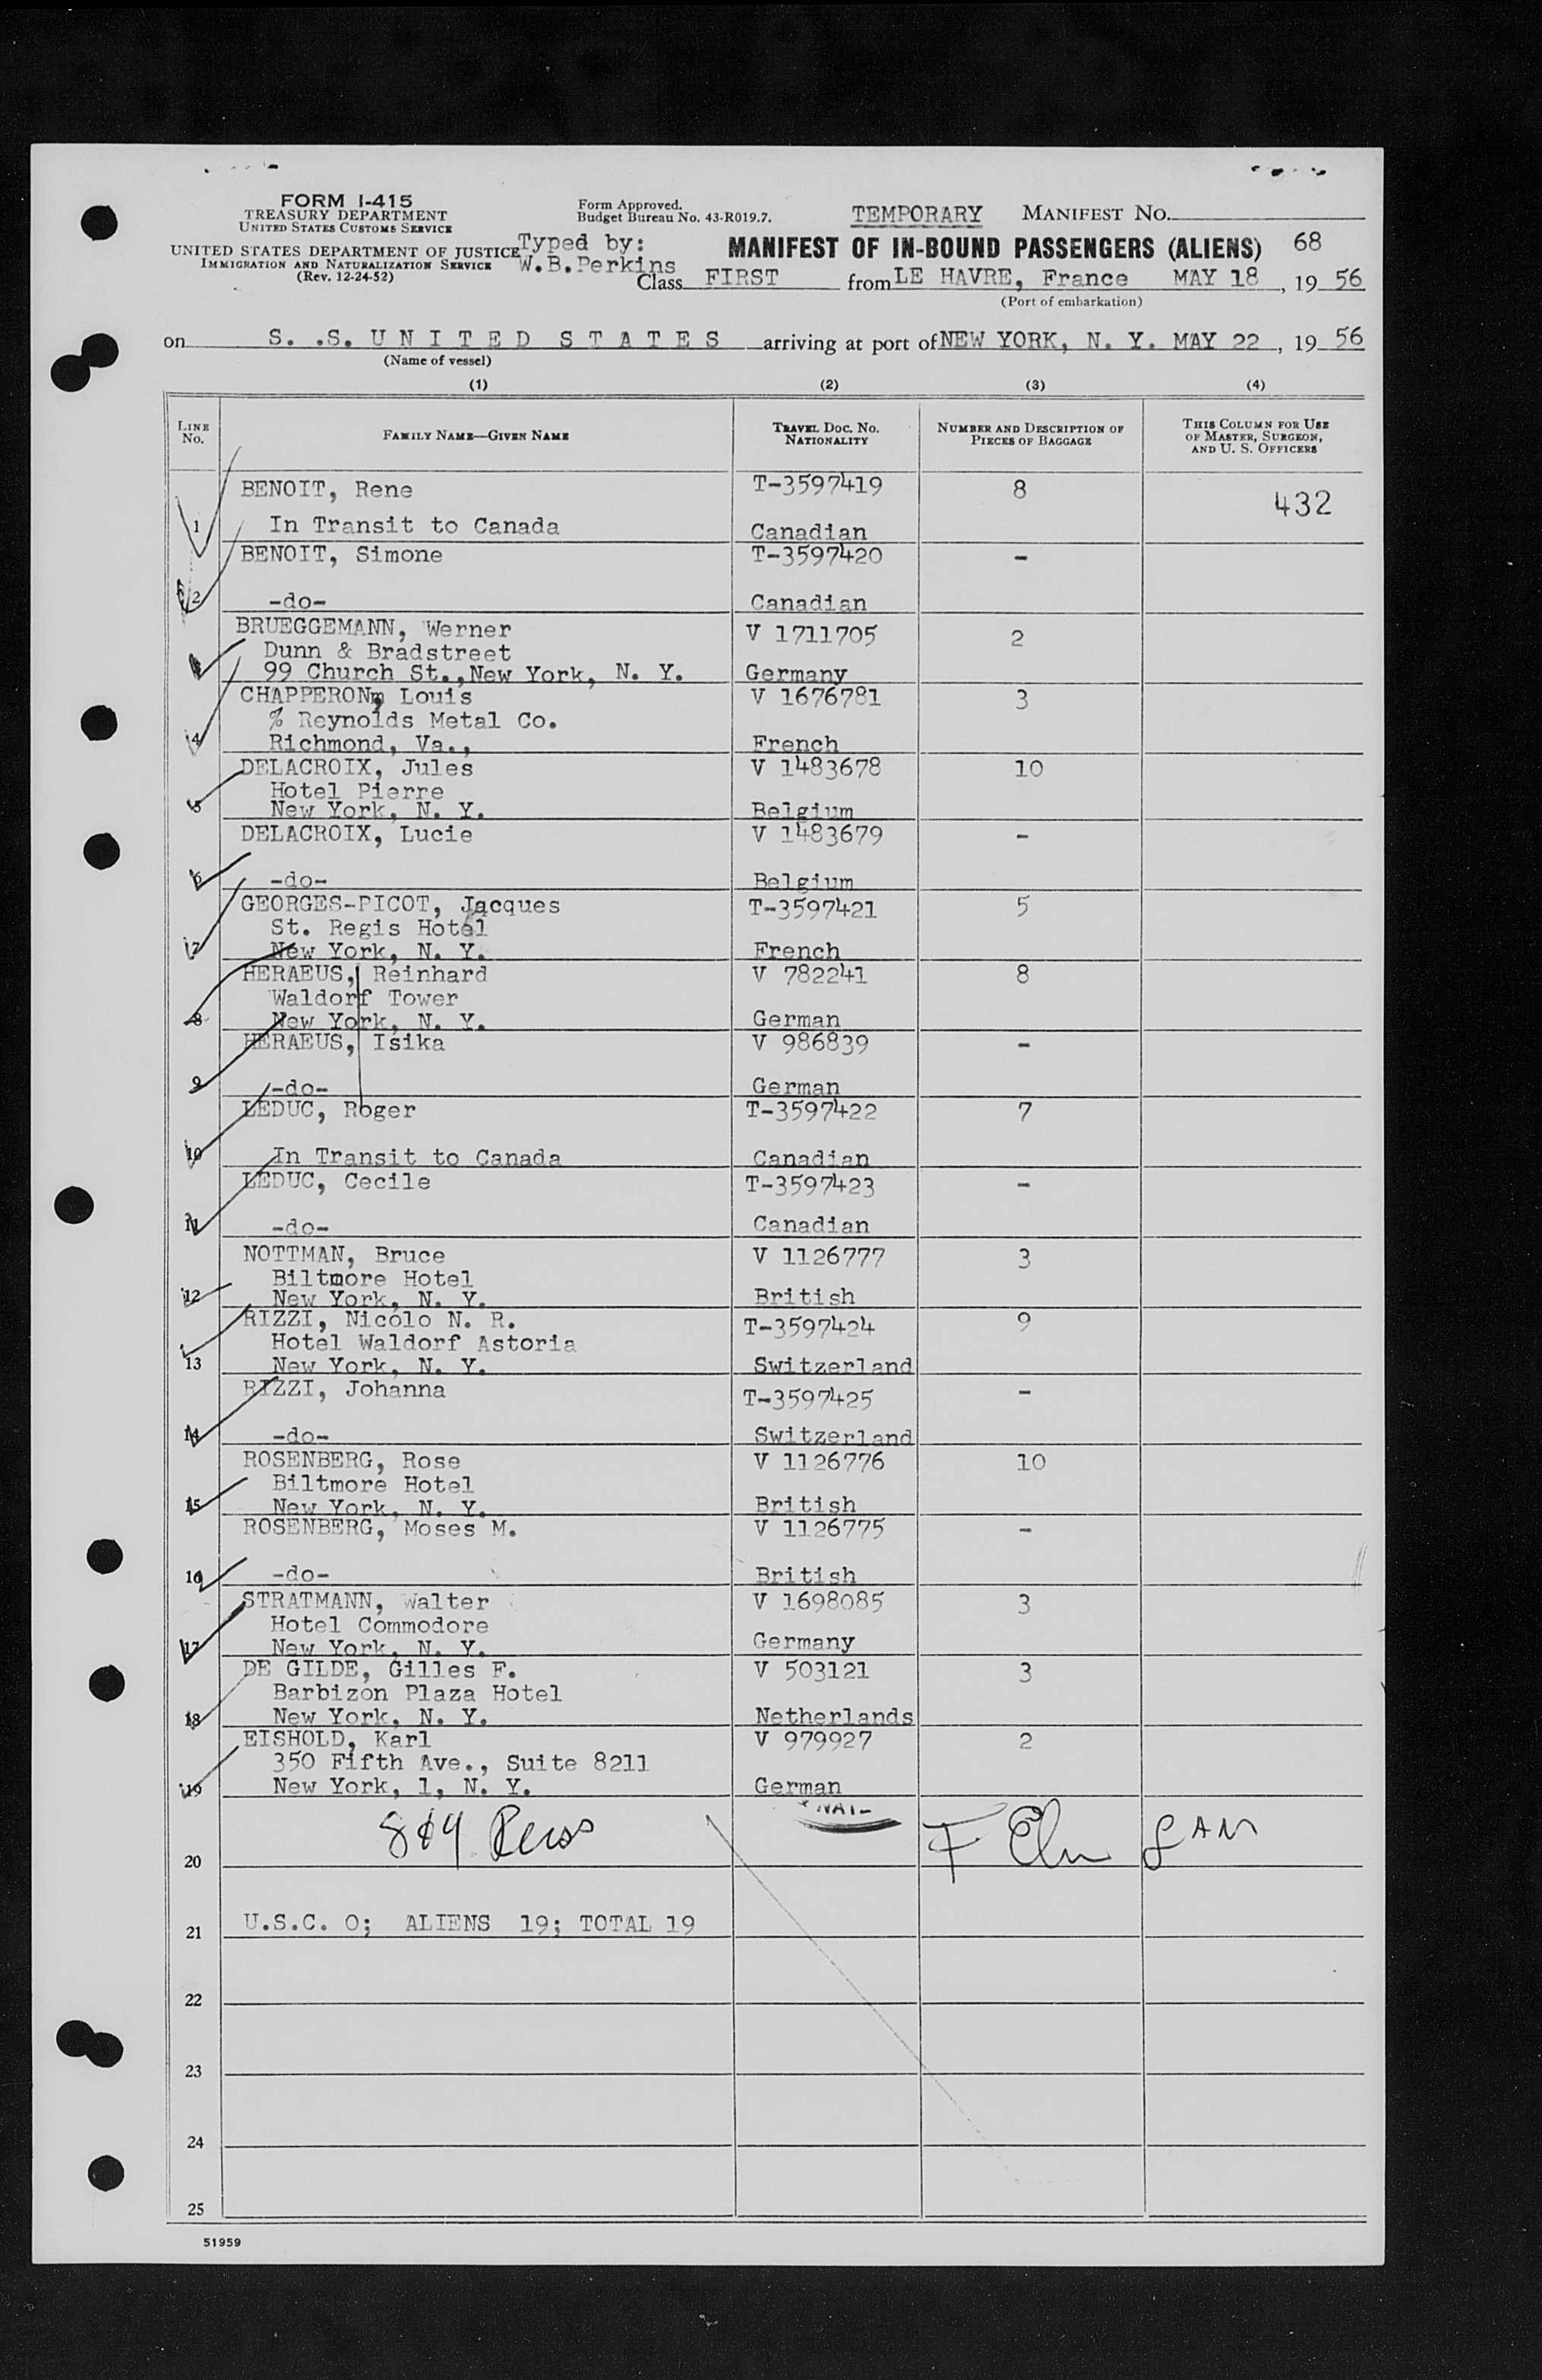 FORM I-415
TREASURY DEPARTMENT
UNITED STATES CUSTOMS SERVICE
UNITED STATES DEPARTMENT OF JUSTICE
IMMIGRATION AND NATURALIZATION SERVICE
(Rev. 12-24-52)
Form Approved.
Budget Bureau No. 43-R019.7.
Typed by:
W.B.Perkins
TEMPORARY MANIFEST NO.
MANIFEST OF IN-BOUND PASSENGERS (ALIENS) 68
Class FIRST from LE HAVRE, France MAY 18, 19 56
(Port of embarkation)
on S. .S. U N I T E D S T A T E S arriving at port of NEW YORK, N. Y. MAY 22, 19 56
(Name of vessel)
(1) (2) (3) (4)
LINE No. FAMILY NAME—GIVEN NAME TRAVEL DOC. NO. NATIONALITY NUMBER AND DESCRIPTION OF PIECES OF BAGGAGE THIS COLUMN FOR USE OF MASTER, SURGEON, AND U. S. OFFICERS
BENOIT, Rene T-3597419 8 432
1 In Transit to Canada Canadian
BENOIT, Simone T-3597420 -
2 -do- Canadian
BRUEGGEMANN, Werner V 1711705 2
Dunn & Bradstreet
99 Church St.,New York, N. Y. Germany
CHAPPERON, Louis V 1676781 3
% Reynolds Metal Co.
4 Richmond, Va., French
DELACROIX, Jules V 1483678 10
Hotel Pierre
5 New York, N. Y. Belgium
DELACROIX, Lucie V 1483679 -
6 -do- Belgium
GEORGES-PICOT, Jacques T-3597421 5
St. Regis Hotel
17 New York, N. Y. French
HERAEUS, Reinhard V 782241 8
Waldorf Tower
8 New York, N. Y. German
HERAEUS, Isika V 986839 -
9 -do- German
LEDUC, Roger T-3597422 7
10 In Transit to Canada Canadian
LEDUC, Cecile T-3597423 -
11 -do- Canadian
NOTTMAN, Bruce V 1126777 3
Biltmore Hotel
12 New York, N. Y. British
RIZZI, Nicolo N. R. T-3597424 9
Hotel Waldorf Astoria
13 New York, N. Y. Switzerland
RIZZI, Johanna T-3597425 -
14 -do- Switzerland
ROSENBERG, Rose V 1126776 10
Biltmore Hotel
15 New York, N. Y. British
ROSENBERG, Moses M. V 1126775 -
16 -do- British
STRATMANN, Walter V 1698085 3
Hotel Commodore
17 New York, N. Y. Germany
DE GILDE, Gilles F. V 503121 3
Barbizon Plaza Hotel
18 New York, N. Y. Netherlands
EISHOLD, Karl V 979927 2
350 Fifth Ave., Suite 8211
19 New York, 1, N. Y. German
20
21 U.S.C. 0; ALIENS 19; TOTAL 19
22
23
24
25
51959